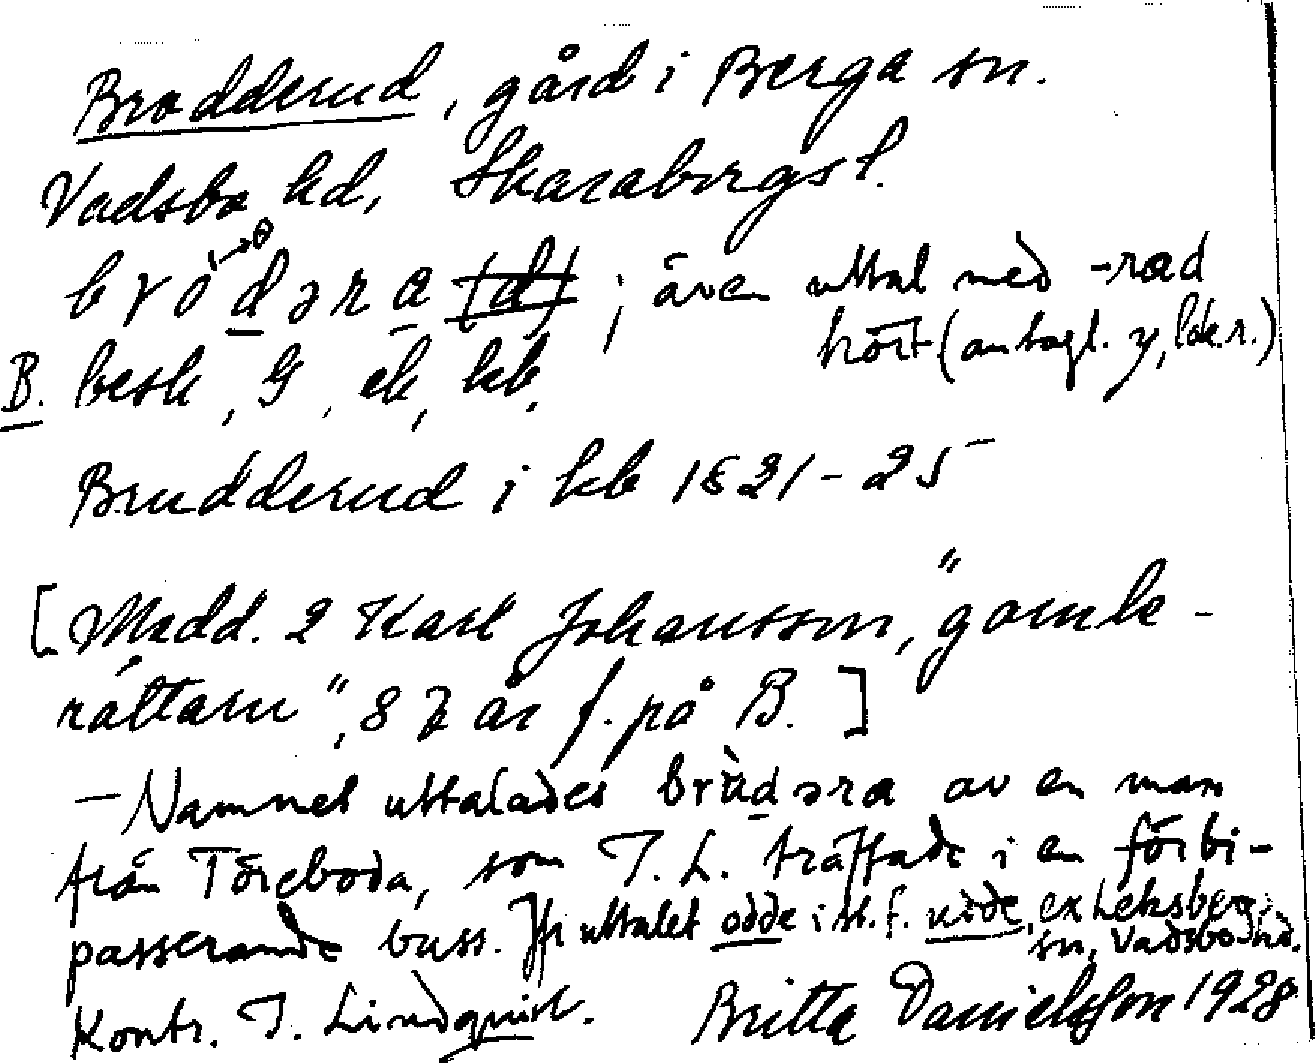 Brodderud, gård i Berga sn.
Vadsbo hd, Skaraborgs l.
brödəra (d) ; även uttal med -rad
hört (antagl. y, lok.r.)
B. besk, G, ek, kb,
Brudderud i kb 1821-25
[Medd. 2 Karl Johansson, "gamle-
rättarn", 87 år f. på B.]
— Namnet uttalades brùdəra av en man
från Töreboda, som I. L. träffade i en förbi-
passerande buss. Jfr uttalet odde i st. f. udde, ex Leksberg
sn, Vadsbo hd.
Kontr. I. Lindquist. Britta Danielsson 1928